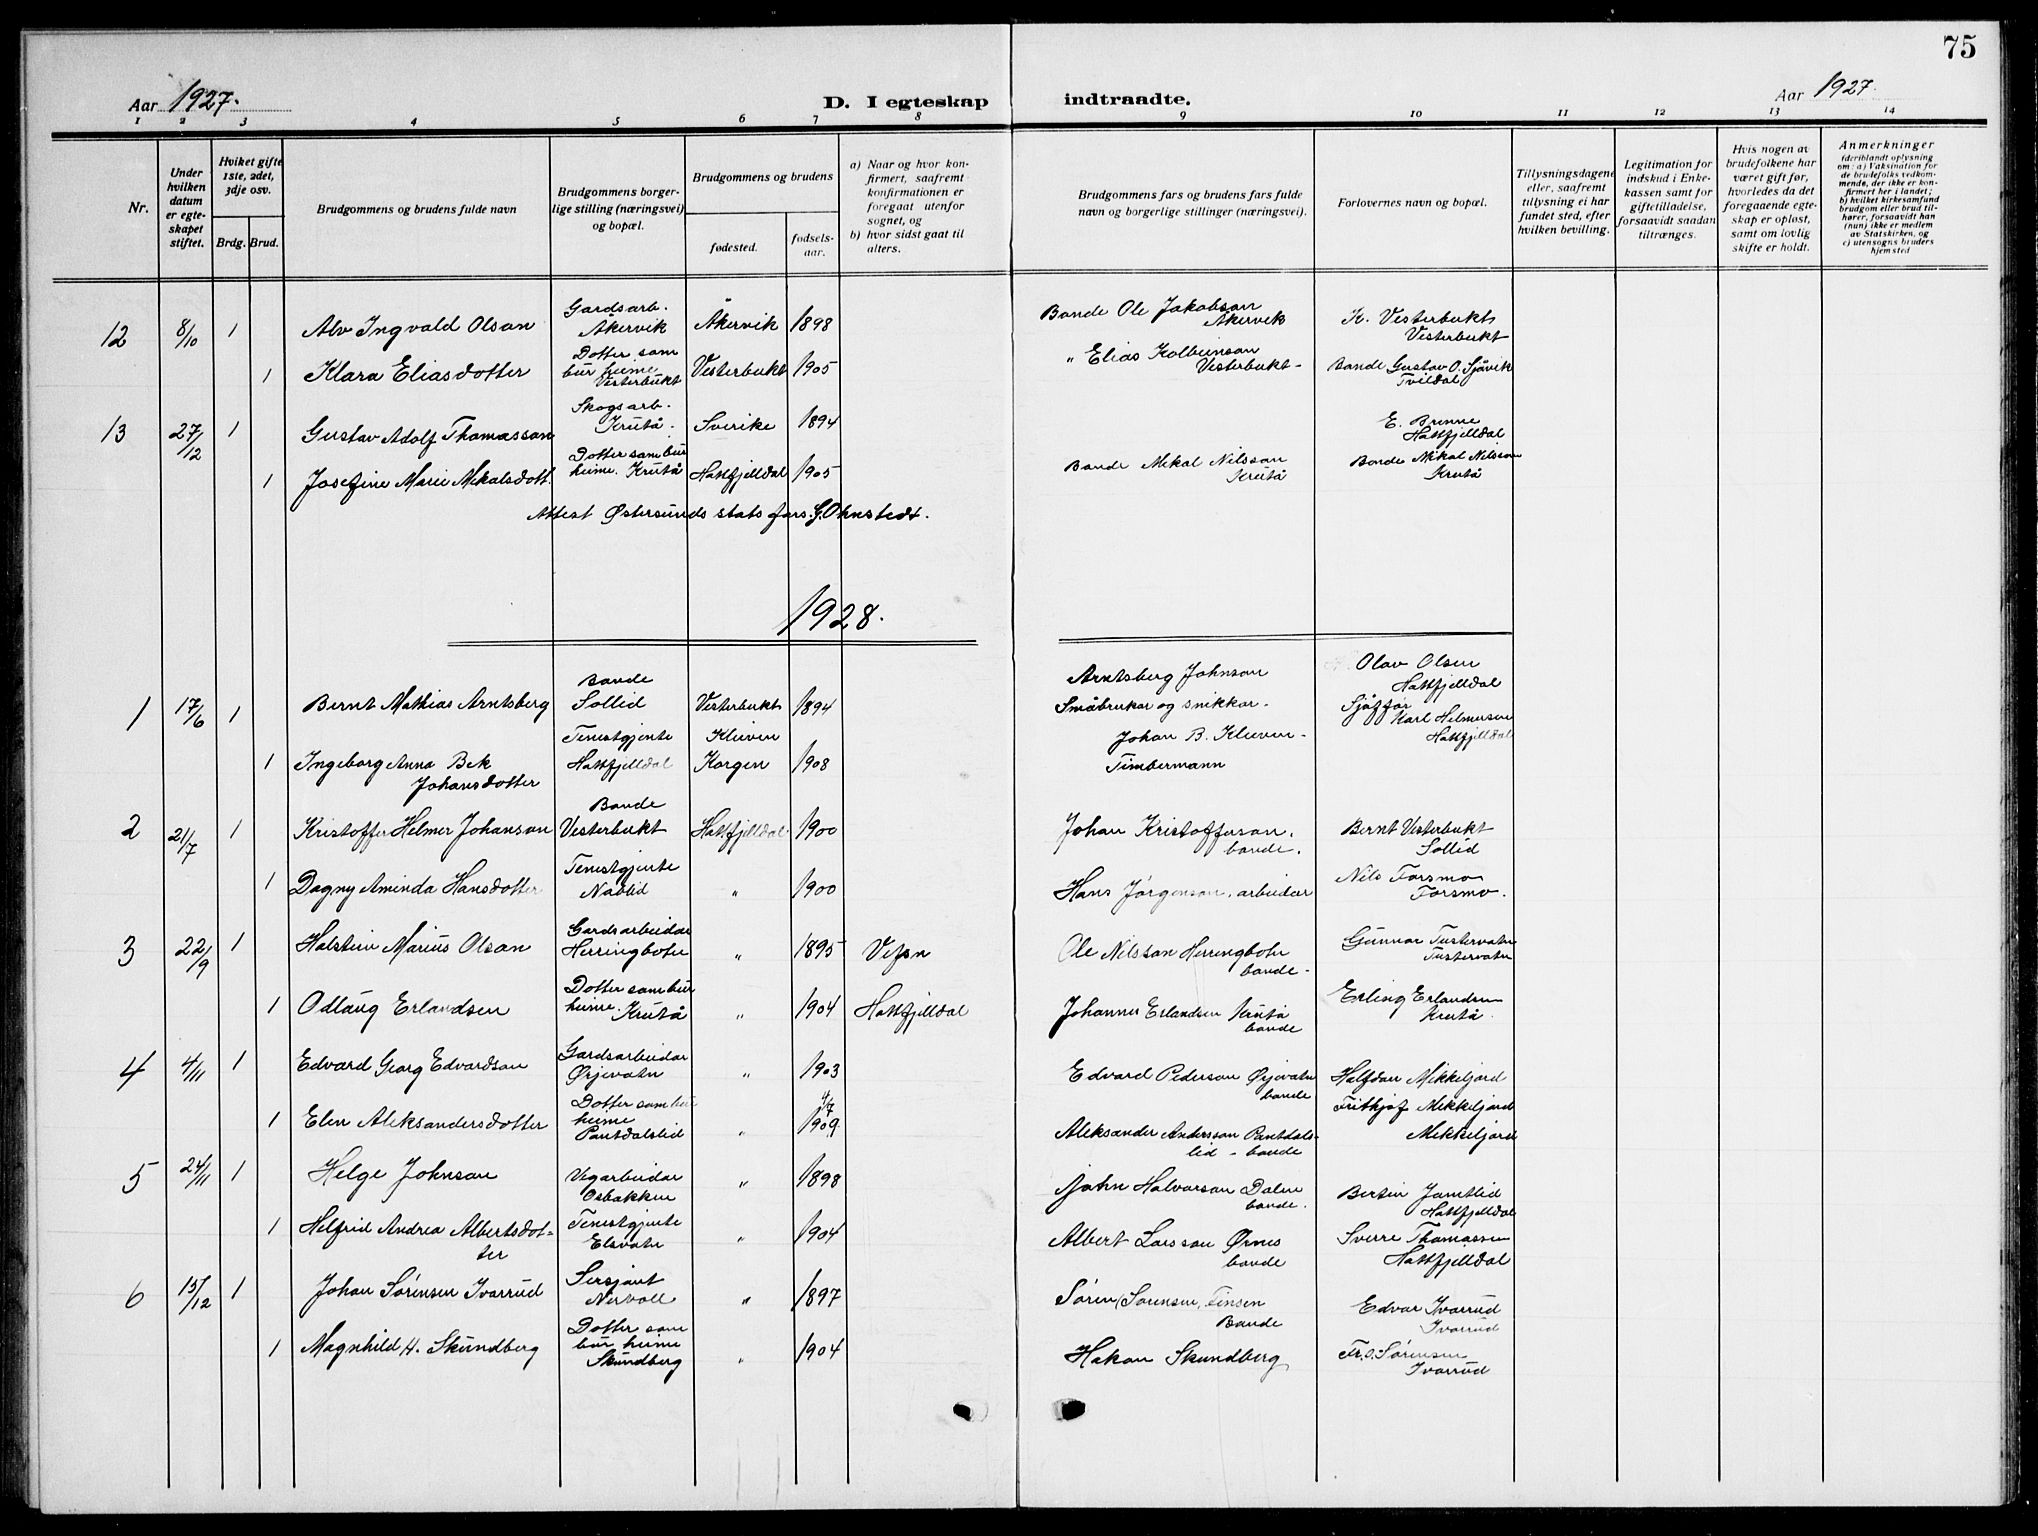 75
Aar 1927.
D. I egteskap
indtraadte.
Aar 1927.
1 2 3 4 5 6 7 8 9 10 11 12 13 14
Nr.
Under hvilken datum er egteskapet stiftet.
Hviket gifte 1ste, 2det, 3dje osv.
Brdg. Brud.
Brudgommens og brudens fulde navn
Brudgommens borgerlige stilling (næringsvei) og bopæl.
Brudgommens og brudens
fødested.
fødselsaar.
a) Naar og hvor konfirmert, saafremt konfirmationen er foregaat utenfor sognet, og
b) hvor sidst gaat til alters.
Brudgommens fars og brudens fars fulde navn og borgerlige stillinger (næringsvei).
Forlovernes navn og bopæl.
Tillysningsdagene eller, saafremt tillysning ei har fundet sted, efter hvilken bevilling.
Legitimation for indskud i Enkekassen samt for giftetilladelse, forsaavidt saadan tiltrænges.
Hvis nogen av brudefolkene har været gift før, hvorledes da det foregaaende egteskap er opløst, samt om lovlig skifte er holdt.
Anmerkninger
(deriblandt oplysning om: a) Vaksination for de brudefolks vedkommende, der ikke er konfirmert her i landet; b) hvilket kirkesamfund brudgom eller brud tilhører, forsaavidt han (hun) ikke er medlem av Statskirken, og c) utensogns bruders hjemsted
12 8/10 1 Alv Ingvald Olson Gardsarb. Åkervik Åkervik 1898 Bonde Ole Jakobson Åkervik K. Vesterbukt Vesterbukt
1 Klara Eliasdotter Dotter som bur heime Vesterbukt Vesterbukt 1905 " Elias Kolbeinson Vesterbukt - Bonde Gustav O. Sjåvik Tvildal
13 27/12 1 Gustav Adolf Thomasson Skogsarb. Krutå. Sverike 1894 E. Brenne Hattfjelldal
1 Josefine Marie Mikalsdott. Dotter som bur heime. Krutå Hattfjelldal 1905 Bonde Mikal Nilsson Krutå Bonde Mikal Nilsson Krutå
Attest Østersunds stats fors. G. Ohnstedt.
1928.
1 17/6 1 Bernt Mathias Arntsberg Bonde Sollid Vesterbukt 1894 Arntsberg Johnson Småbrukar og snikkar. Olav Olsen Hattfjelldal
1 Ingeborg Anna Bek Johansdotter Tenestgjente Hattfjelldal Kleiven Korgen 1908 Johan B. Kleiven - Timbermann Sjåffør Karl Helmersen Hattfjelldal
2 21/7 1 Kristoffer Helmer Johanson Bonde Vesterbukt Hattfjelldal. 1900 Johan Kristofferson. bonde. Bernt Vesterbukt Sollid
1 Dagny Aminda Hansdotter Tenestgjente Nåblid " 1900 Hans Jørgenson, arbeidar Nils Forsmo Forsmo.
3 22/9 1 Halstein Marius Olson Gardsarbeidar Herringbotn " 1895 Vefsn Ole Nilsson Herringbotn bonde - Gunnar Tustervatn Tustervatn
1 Odlaug Erlandsen Dotter som bur heime. Krutå " 1904 Hattfjelldal Johannes Erlandsen Krutå bonde Erling Erlandsen Krutå.
4 4/11 1 Edvard Georg Edvardson Gardsarbeidar Ørjevatn " 1903 Edvard Pederson Ørjevatn bonde Halfdan Mikkeljord
1 Elen Aleksandersdotter Dotter som bur heime Pantdalslid " 4/7 1909 Aleksander Andersson Pantdalslid - bonde Frithjof Mikkeljord Mikkeljord
5 24/11 1 Helge Johnson Vegarbeidar Osbakken " 1898 John Halvorson Dalen bonde. Bertin Jamtlid Hattfjelldal
1 Helfrid Andrea Albertsdotter Tenestgjente Elsvatn " 1904 Albert Larsson Ørnes bonde Sverre Thomassen Hattfjelldal
6 15/12 1 Johan Sørensen Ivarrud Sersjant Nervoll " 1897 Søren Sørensen, Finsen Bonde Edvar Ivarrud Ivarrud
1 Magnhild H. Skundberg Dotter som bur heime Skundberg " 1904 Hakon Skundberg Fr. S. Sørensen Ivarrud